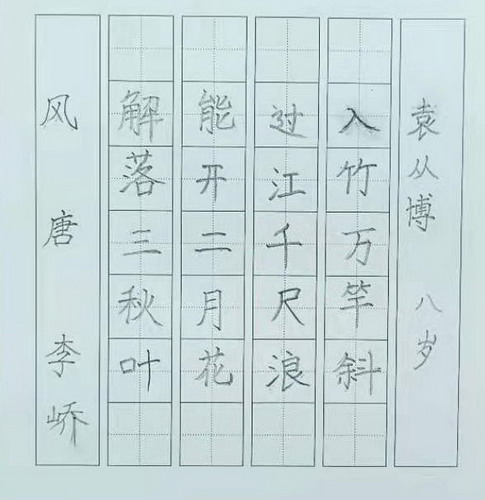 风 唐 李峤
解落三秋叶
能开二月花
过江千尺浪
入竹万竿斜
袁从博 八岁